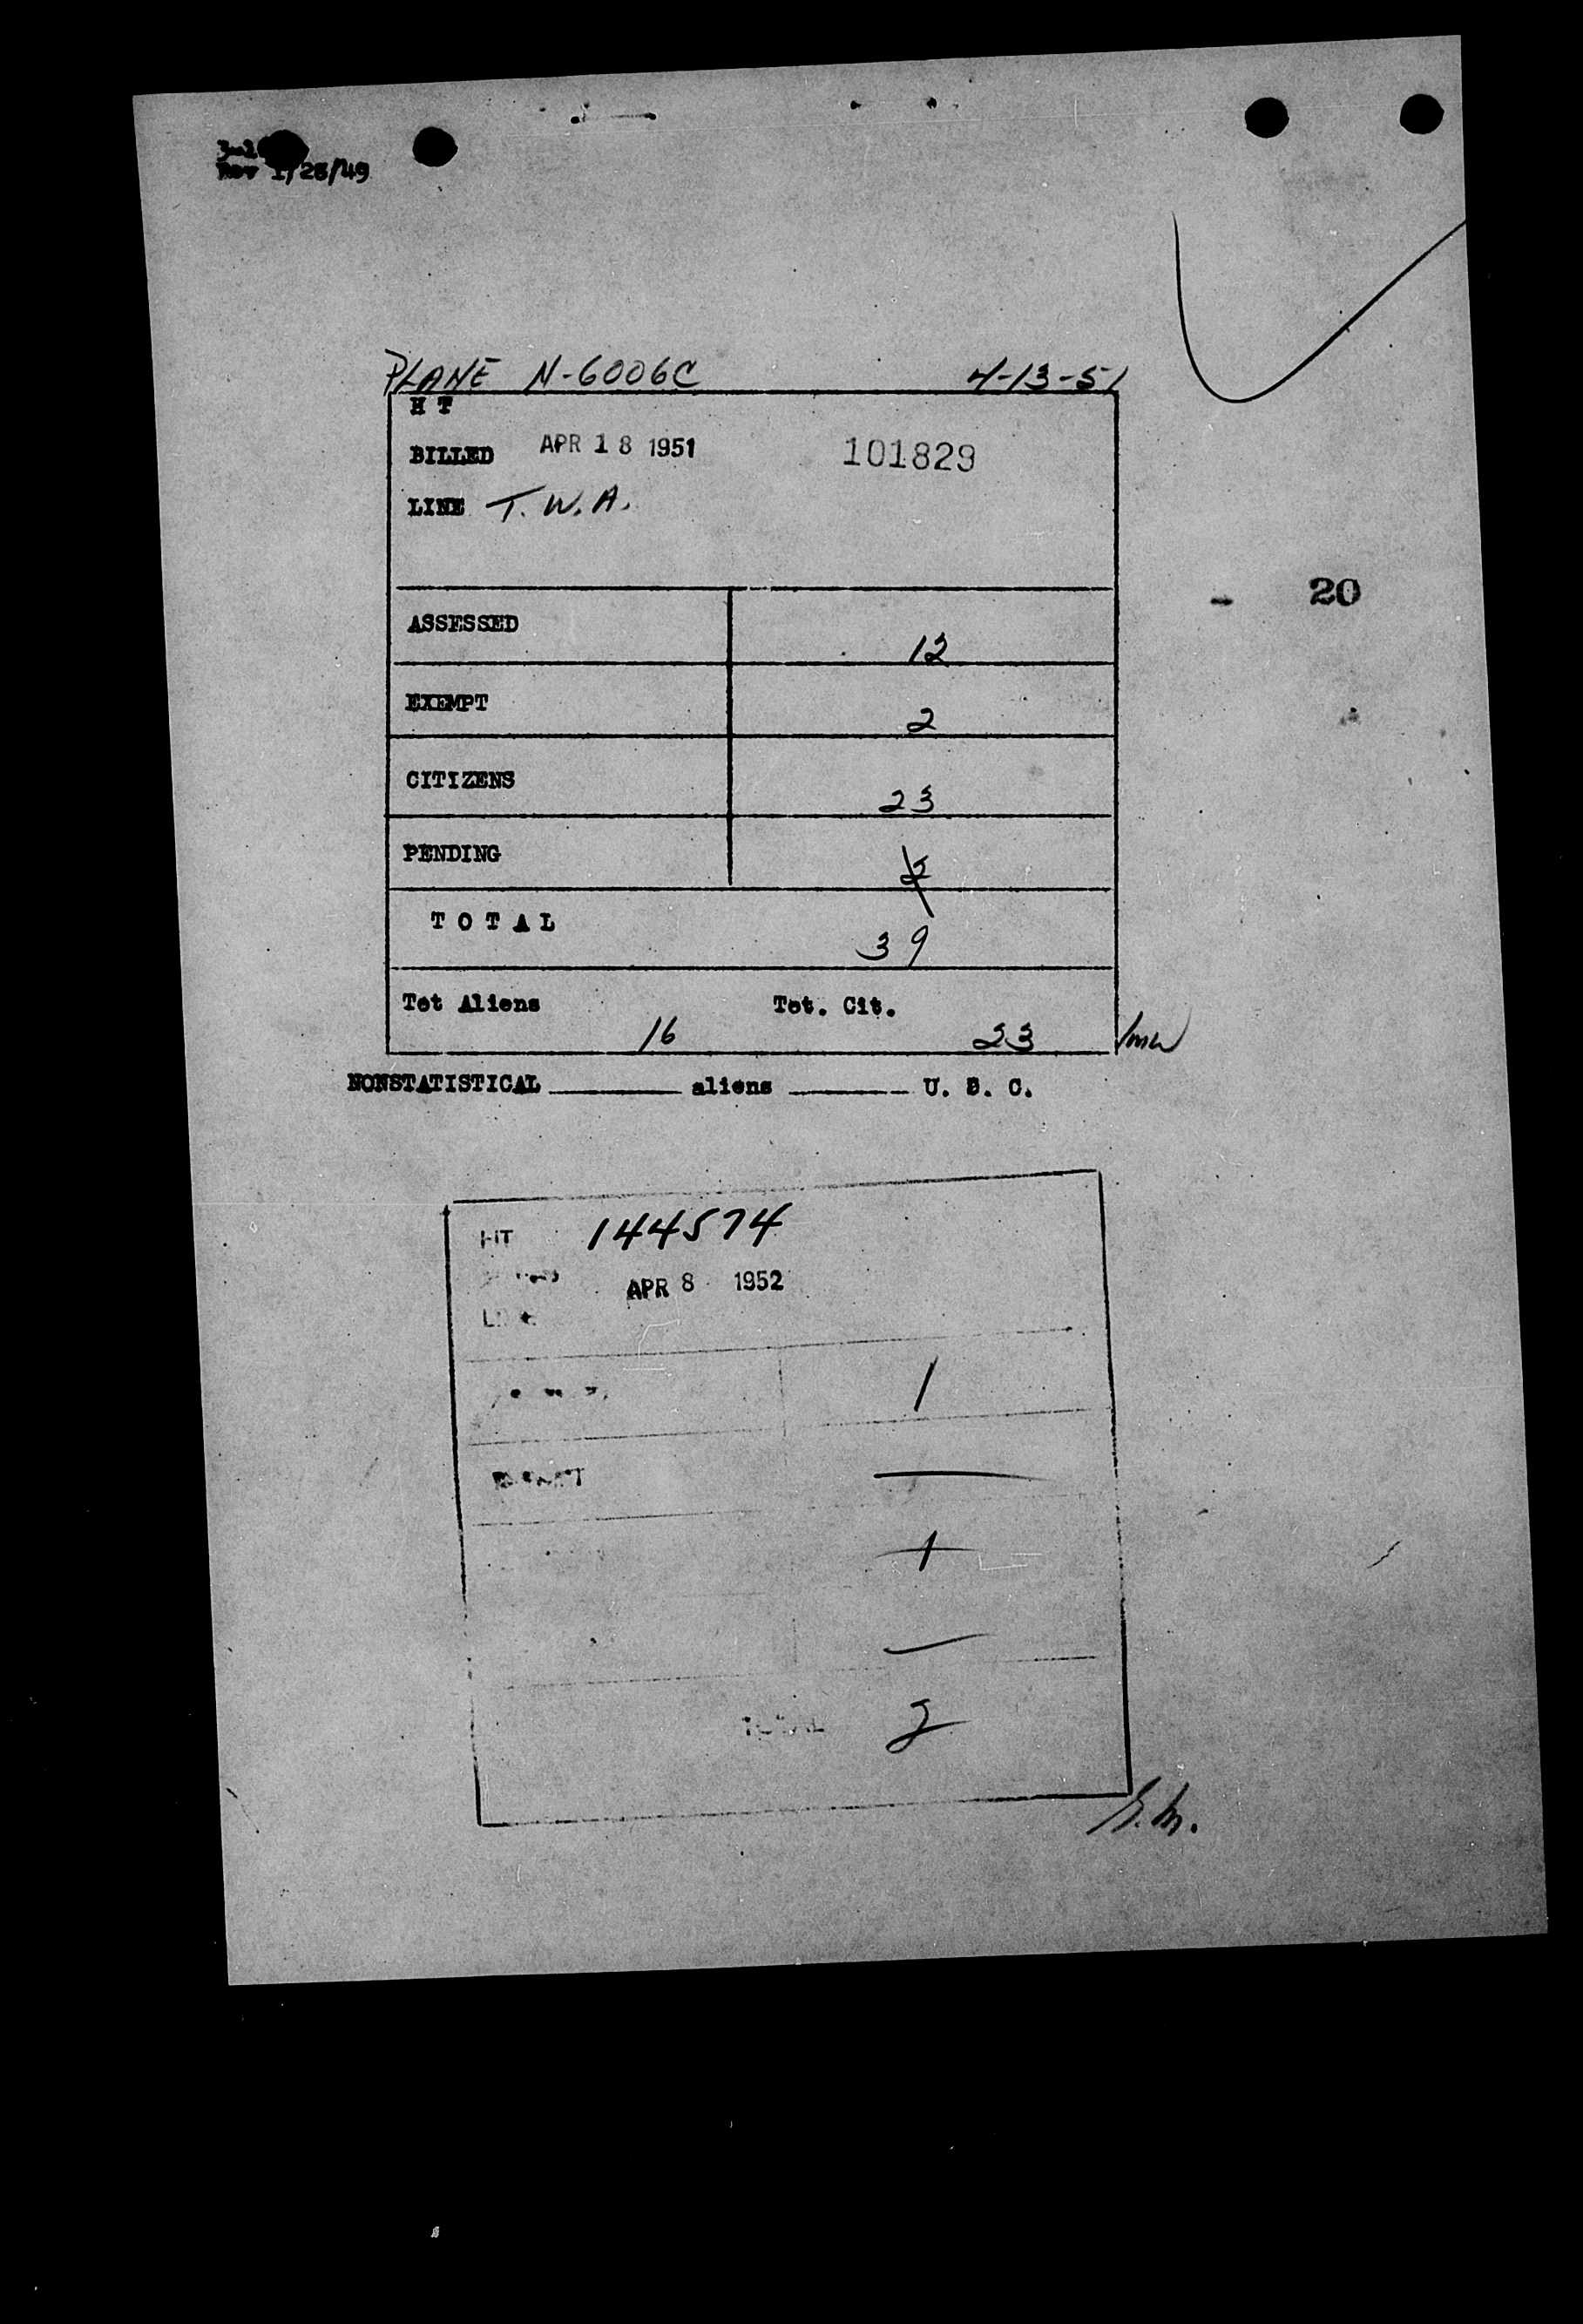 Rev 1/28/49
PLANE N-6006C 4-13-51
H T
BILLED APR 18 1951 101829
LINE T.W.A.
- 20
ASSESSED 12
EXEMPT 2
CITIZENS 23
PENDING 2
TOTAL 39
Tot Aliens 16 Tot. Cit. 23
NONSTATISTICAL aliens U. S. C.
HT 144574
APR 8 1952
1
EXEMPT —
1
—
TOTAL 2